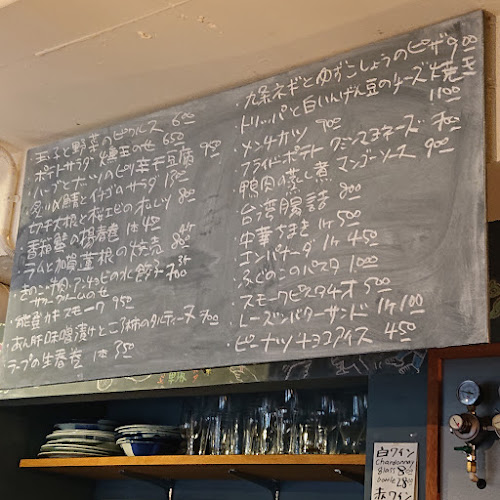 玉子と野菜のピクルス 600
ポテトサラダ 燻玉のせ 650
ハーブとナッツのピリ辛干豆腐 950
炙り〆鯖とイチゴのサラダ
切干大根と桜エビのオムレツ 800
香箱蟹の揚春巻 1本 450
ラムと加賀蓮根の焼売
きのこ・肉・アンチョビの水餃子 3ケ 700
サワークリームのせ
能登牡蛎スモーク 950
あん肝味噌漬けところ柿のタルティーヌ 700
ラープの生春巻 1本 350
・九条ネギとゆずこしょうのピザ 900
・トリッパと白いんげん豆のチーズ焼 玉 1100
・メンチカツ 900
・フライドポテト クミンマヨネーズ 700
・鴨肉の蒸し煮 マンゴーソース 900
・台湾腸詰 800
・中華ちまき 1ケ 500
・エンパナーダ 1ケ 450
・ふぐのこのパスタ 1000
・スモークピスタチオ 500
・レーズンバターサンド 1ケ 100
・ピーナッツチョコアイス 450
白ワイン
Chardonnay
glass
bottle
赤ワイン